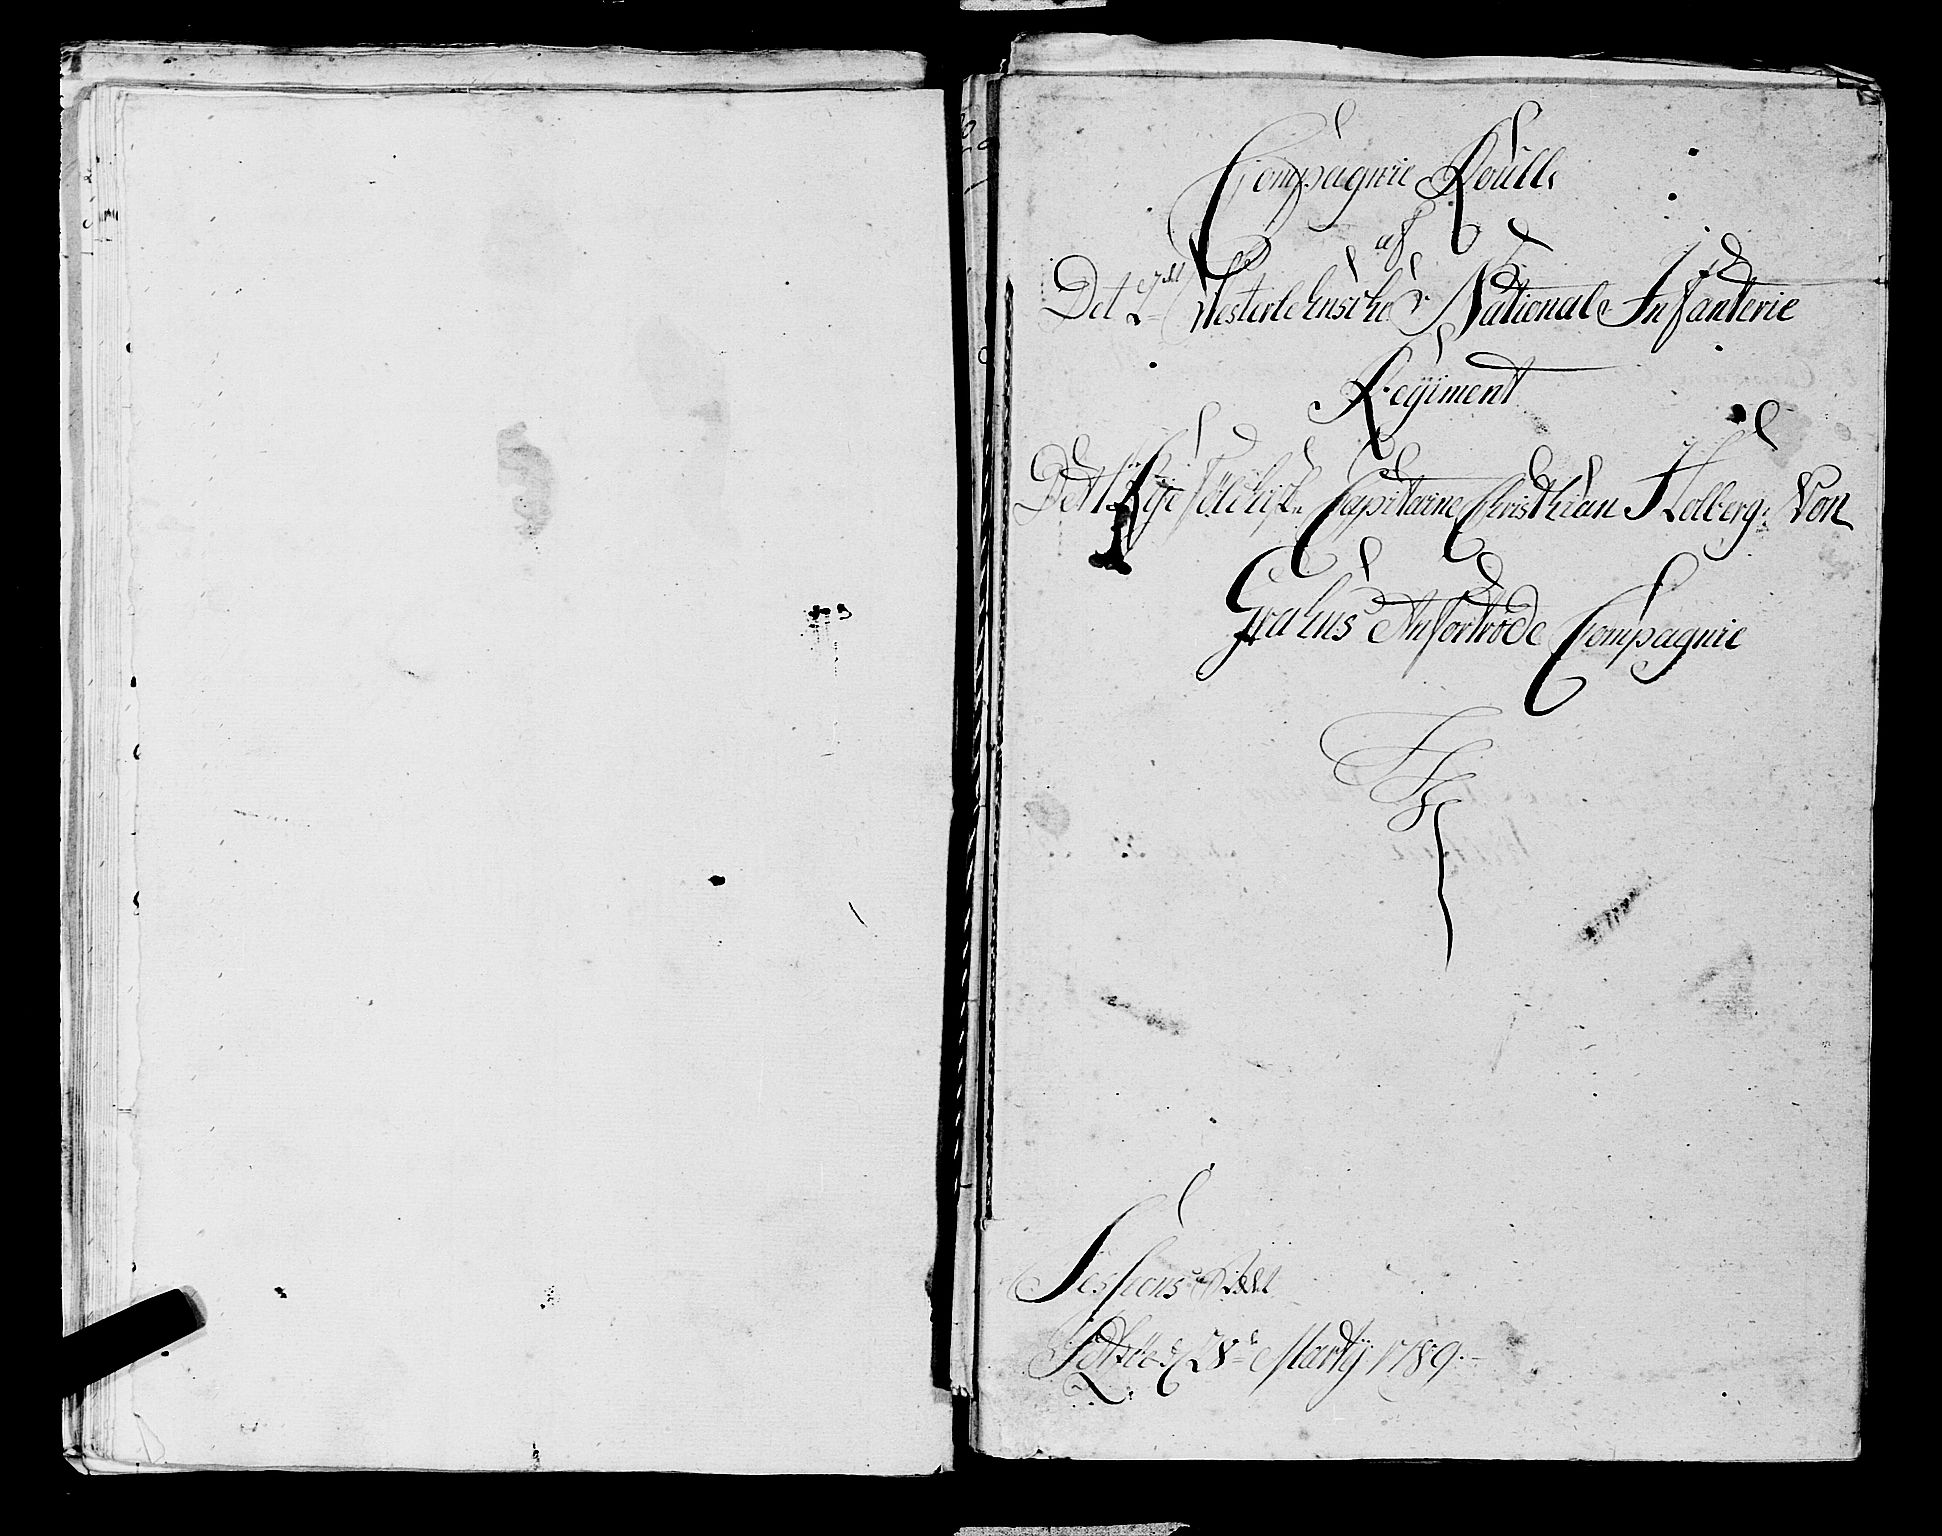 Compagnie Roulle
af
Det 2det Westerlehnsche National Infanterie
Regiment
Det Ryefylchiske Capitaine Christhian Holberg Von
Grahns Anfortrode Compagnie
Sessions
28de Martÿ 1789.